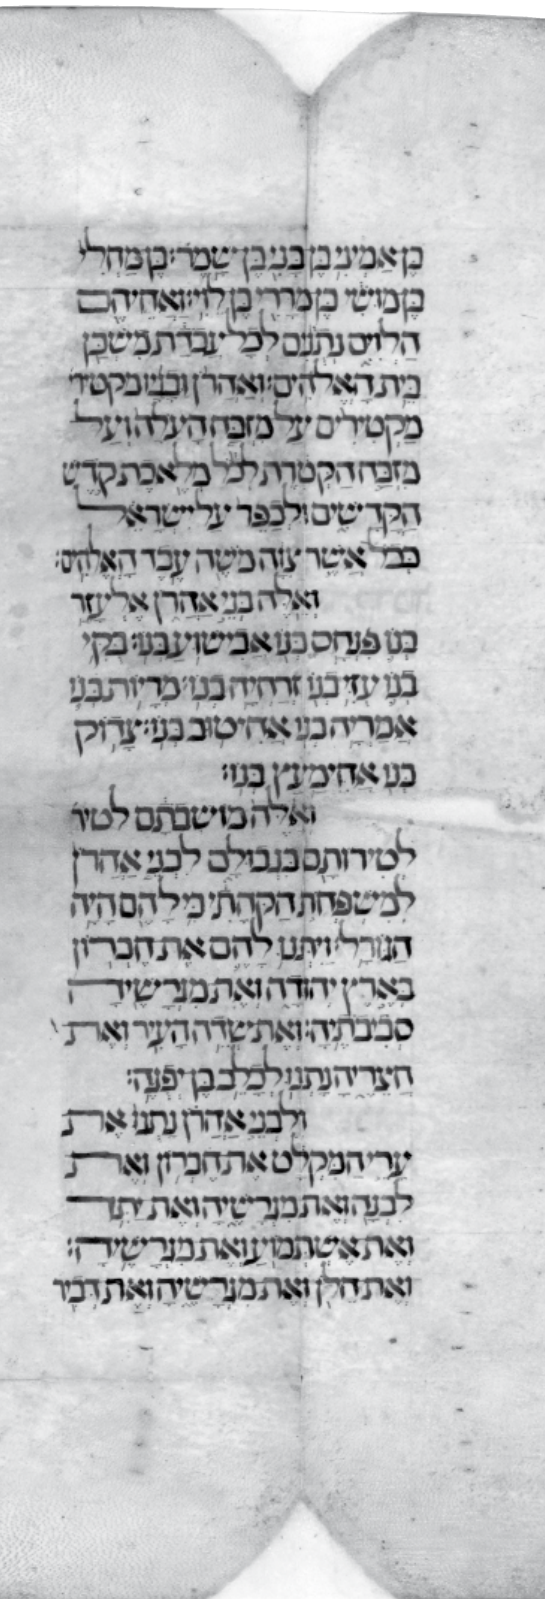 בן אמצי בן בני בן שמר׃ בן מחלי
בן מושי בן מררי בן לוי׃ ואחיהם
הלוים נתנים לכל עבדת משכן
בית האלהים׃ ואהרן ובניו מקטירי
מקטירים על מזבח העלה ועל
מזבח הקטרת לכל מלאכת קדש
הקדשים ולכפר על ישראל
ככל אשר צוה משה עבד האלהים׃
ואלה בני אהרן אלעזר
בנו פנחס בנו אבישוע בנו׃ בקי
בנו עזי בנו זרחיה בנו׃ מריות בנו
אמריה בנו אחיטוב בנו׃ צדוק
בנו אחימעץ בנו׃
ואלה מושבתם לטיר
לטירותם בגבולם לבני אהרן
למשפחת הקהתי כי להם היה
הגורל׃ ויתנו להם את חברון
בארץ יהודה ואת מגרשיה
סביבתיה׃ ואת שדה העיר ואת
חצריה נתנו לכלב בן יפנה׃
ולבני אהרן נתנו את
ערי המקלט את חברון ואת
לבנה ואת מגרשיה ואת יתר
ואת אשתמוע ואת מגרשיה׃
ואת חלן ואת מגרשיה ואת דביר